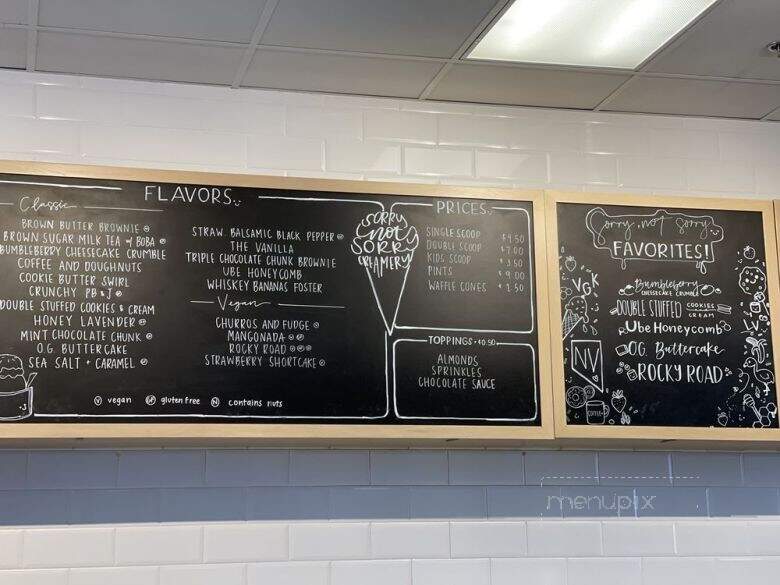 FLAVORS
Classic
BROWN BUTTER BROWNIE
BROWN SUGAR MILK TEA + BOBA
BUMBLEBERRY CHEESECAKE CRUMBLE
COFFEE AND DOUGHNUTS
COOKIE BUTTER SWIRL
CRUNCHY PB & J
DOUBLE STUFFED COOKIES & CREAM
HONEY LAVENDER
MINT CHOCOLATE CHUNK
O.G. BUTTERCAKE
SEA SALT + CARAMEL
STRAW. BALSAMIC BLACK PEPPER
THE VANILLA
TRIPLE CHOCOLATE CHUNK BROWNIE
UBE HONEYCOMB
WHISKEY BANANAS FOSTER
Vegan
CHURROS AND FUDGE
MANGONADA
ROCKY ROAD
STRAWBERRY SHORTCAKE
V vegan GF gluten free N contains nuts
SORRY
not
SORRY
CREAMERY
PRICES
SINGLE SCOOP $4.50
DOUBLE SCOOP $7.00
KIDS SCOOP $3.50
PINTS $9.00
WAFFLE CONES $1.50
TOPPINGS • $0.50
ALMONDS
SPRINKLES
CHOCOLATE SAUCE
Sorry not Sorry
FAVORITES!
Bumbleberry
CHEESECAKE CRUMBLE
DOUBLE STUFFED COOKIES & CREAM
Ube Honeycomb
O.G. Buttercake
ROCKY ROAD
VGK
NV
COFFEE
menupix